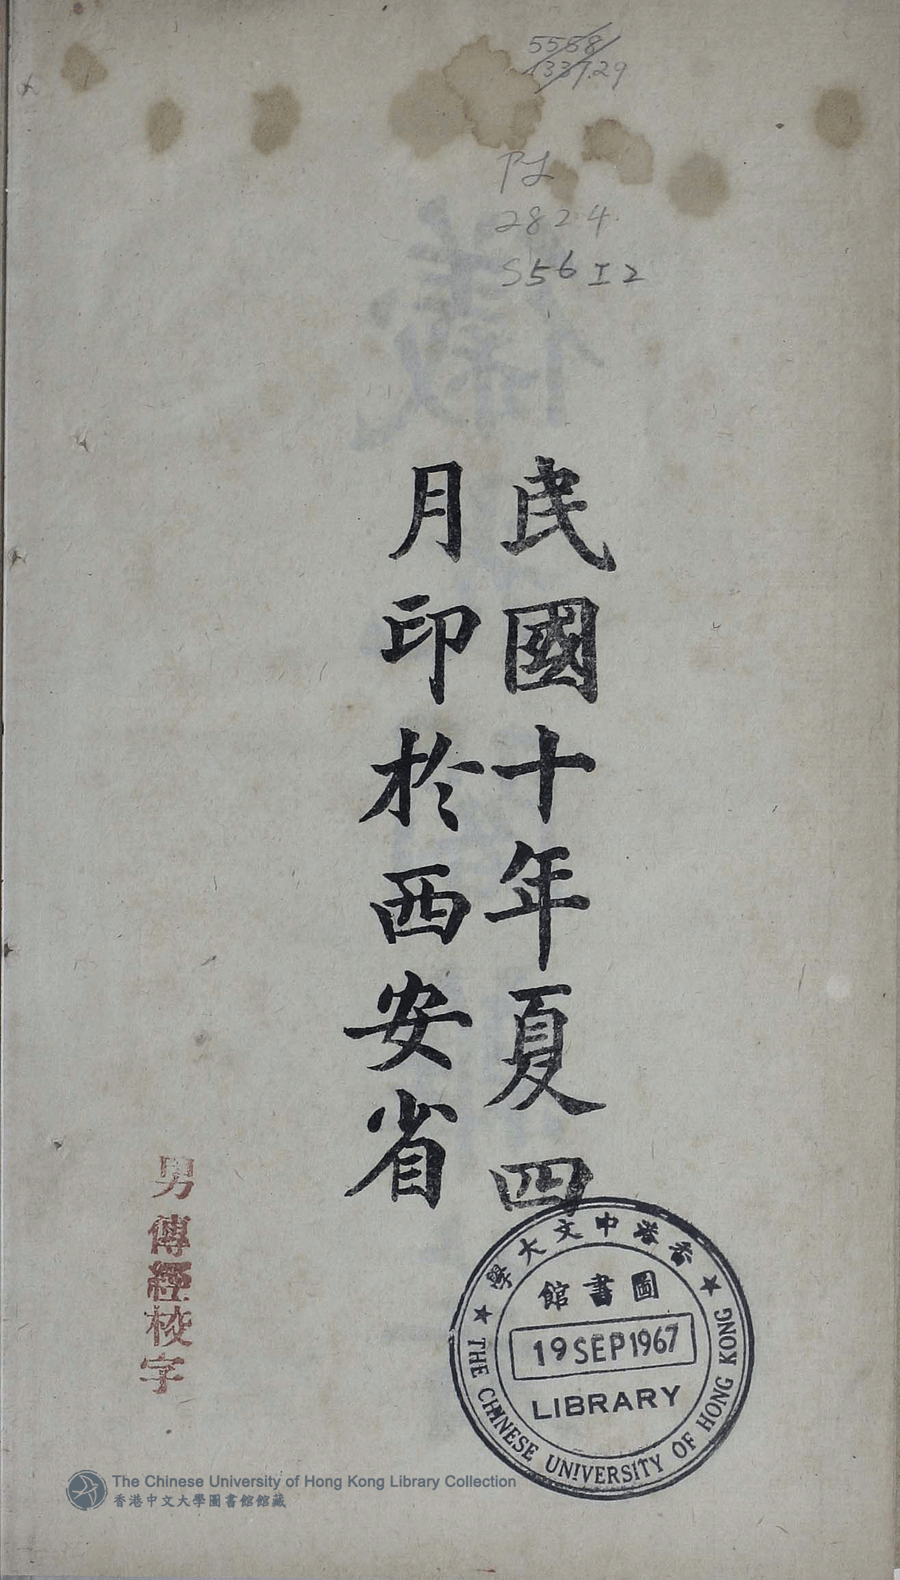 5588
1337.29
PL
2824
S56 I2
民國十年夏四
月印於西安省
男傳經校字
香港中文大學
圖書館
19 SEP 1967
LIBRARY
THE CHINESE UNIVERSITY OF HONG KONG
The Chinese University of Hong Kong Library Collection
香港中文大學圖書館館藏